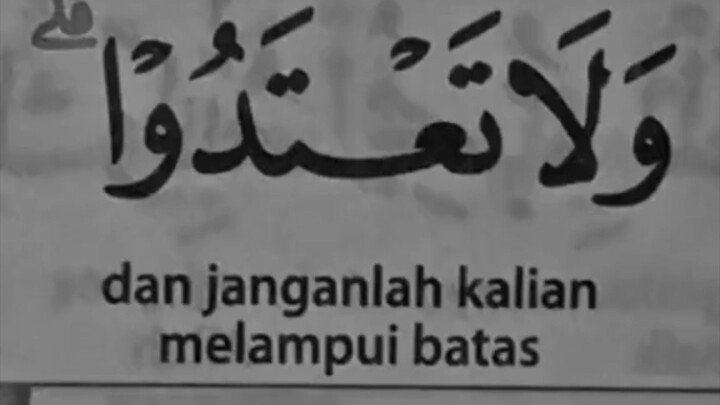 وَلَا تَعْتَدُوْا ۗ
dan janganlah kalian
melampui batas